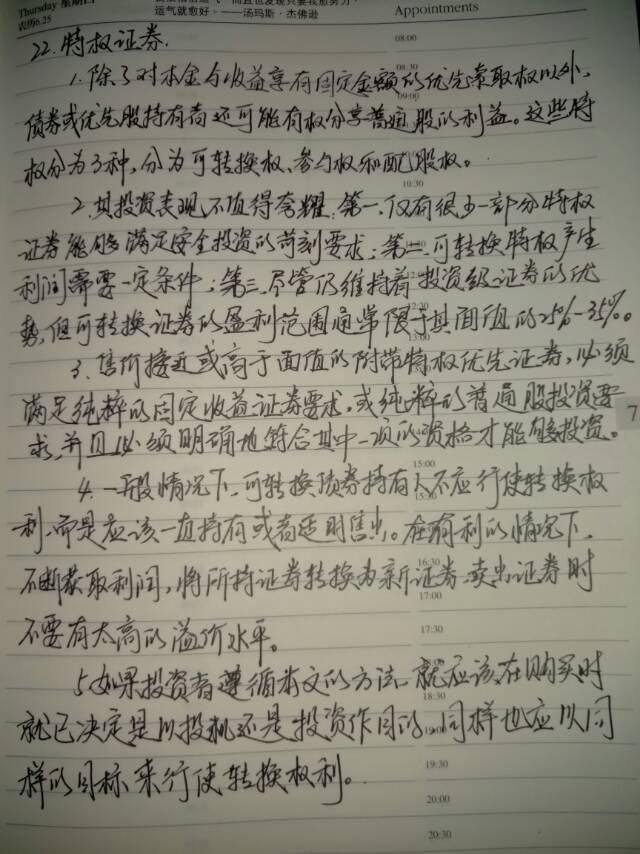 Thursday 星期四
农历6.25
运气就愈好。——汤玛斯·杰佛逊
Appointments
08:00
22. 特权证券.
08:30
1. 除了对本金与收益享有固定金额的优先索取权以外,
09:00
债券或优先股持有者还可能有权分享普通股的利益。这些特
权分为3种,分为可转换权、参与权和配股权。
10:30
2. 其投资表现不值得夸耀:第一.仅有很少一部分特权
证券能够满足安全投资的苛刻要求;第二.可转换特权产生
利润需要一定条件;第三.尽管仍维持着投资级证券的优
势,但可转换证券的盈利范围通常限于其面值的25%-35%。
13:00
3. 售价接近或高于面值的附带特权优先证券,必须
满足纯粹的固定收益证券要求,或纯粹的普通股投资要
求,并且必须明确地符合其中一项的资格才能够投资。
7
15:00
4. 一般情况下,可转换债券持有人不应行使转换权
利,而是应该一直持有或者适时售出。在有利的情况下,
16:30
不断获取利润,将所持证券转换为新证券.卖出证券时
17:00
不要有太高的溢价水平。
17:30
5. 如果投资者遵循本文的方法,就应该在购买时
18:30
就已决定是以投机还是投资作目的,同样也应以同
19:30
样的目标来行使转换权利。
20:00
20:30